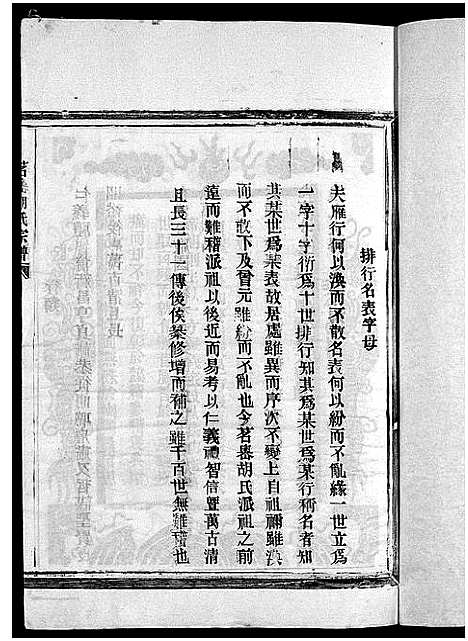 排行名表字母
夫雁行何以渙而不散名表何以紛而不亂緣一世立爲
一字十字衍爲十世排行知其爲某世爲某行稱名者知
其某世爲某表故居處雖異而序次不變上自祖禰雖渙
而不散下及曾元雖紛而不亂也今茗嶴胡氏派祖之前
遠而難稽派祖以後近而易考以仁義禮智信暨萬古清
且長三十二傳後俟纂修增而補之雖千百世無難稽也
胡氏宗譜